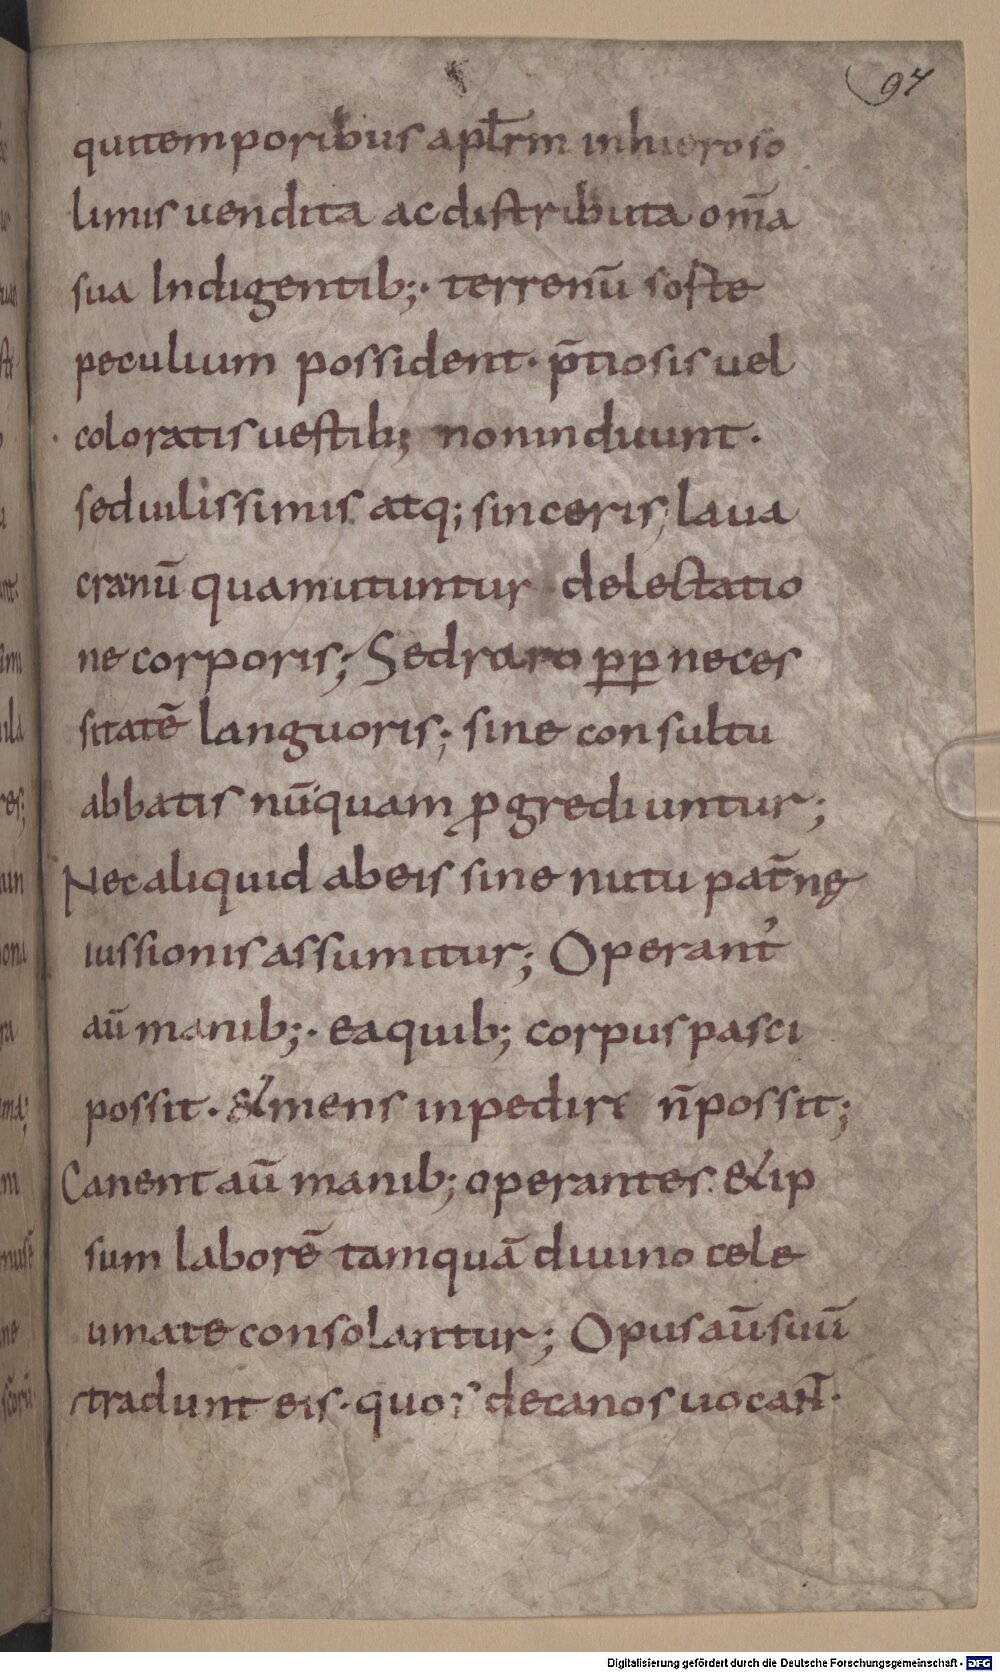 97
qui temporibus aplrm in hieroso
limis uendita ac distributa oma
sua Indigentib;· terrenū soste
peculium possident· p̄tiosis uel
coloratis uestib; non induunt·
sed uilissimis atq; sinceris, laua
cranū quam utuntur delectatio
ne corporis; Sed raro pp neces
sitatē languoris; sine consultu
abbatis nūquam ꝓgrediuntur;
Nec aliquid ab eis sine nutu pat̄nę
iussionis assumitur; Operant᾽
aū manib;· ea quib; corpus pasci
possit· & mens inpedire n̄ possit;
Canent aū manib; operantes· & ip
sum laborē tamquā diuino cele
umate consolantur; Opus aū suū
tradunt eis· quos decanos uocant̄·
Digitalisierung gefördert durch die Deutsche Forschungsgemeinschaft - DFG